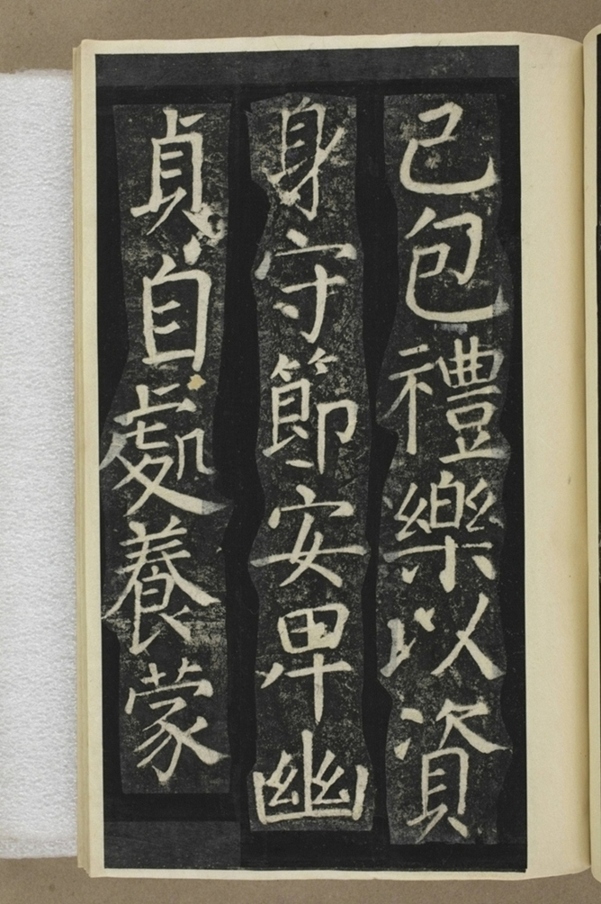 己包禮樂以資
身守節安卑幽
貞自處養蒙